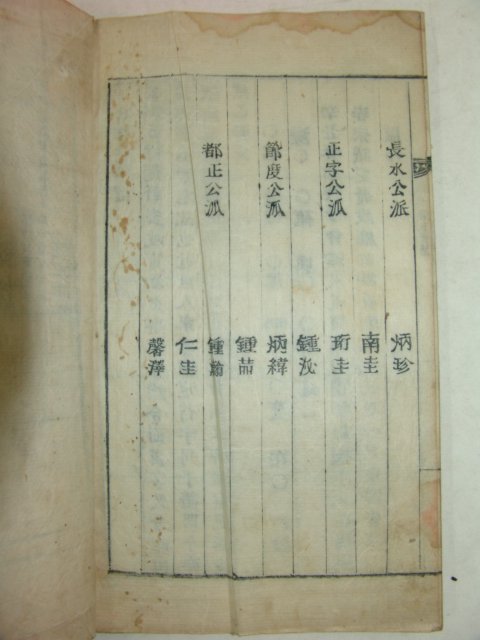 長水公派 炳珍
南圭
正字公派 珩圭
鍾汝
節度公派 炳緯
鍾喆
都正公派 鍾瀚
仁圭
馨澤